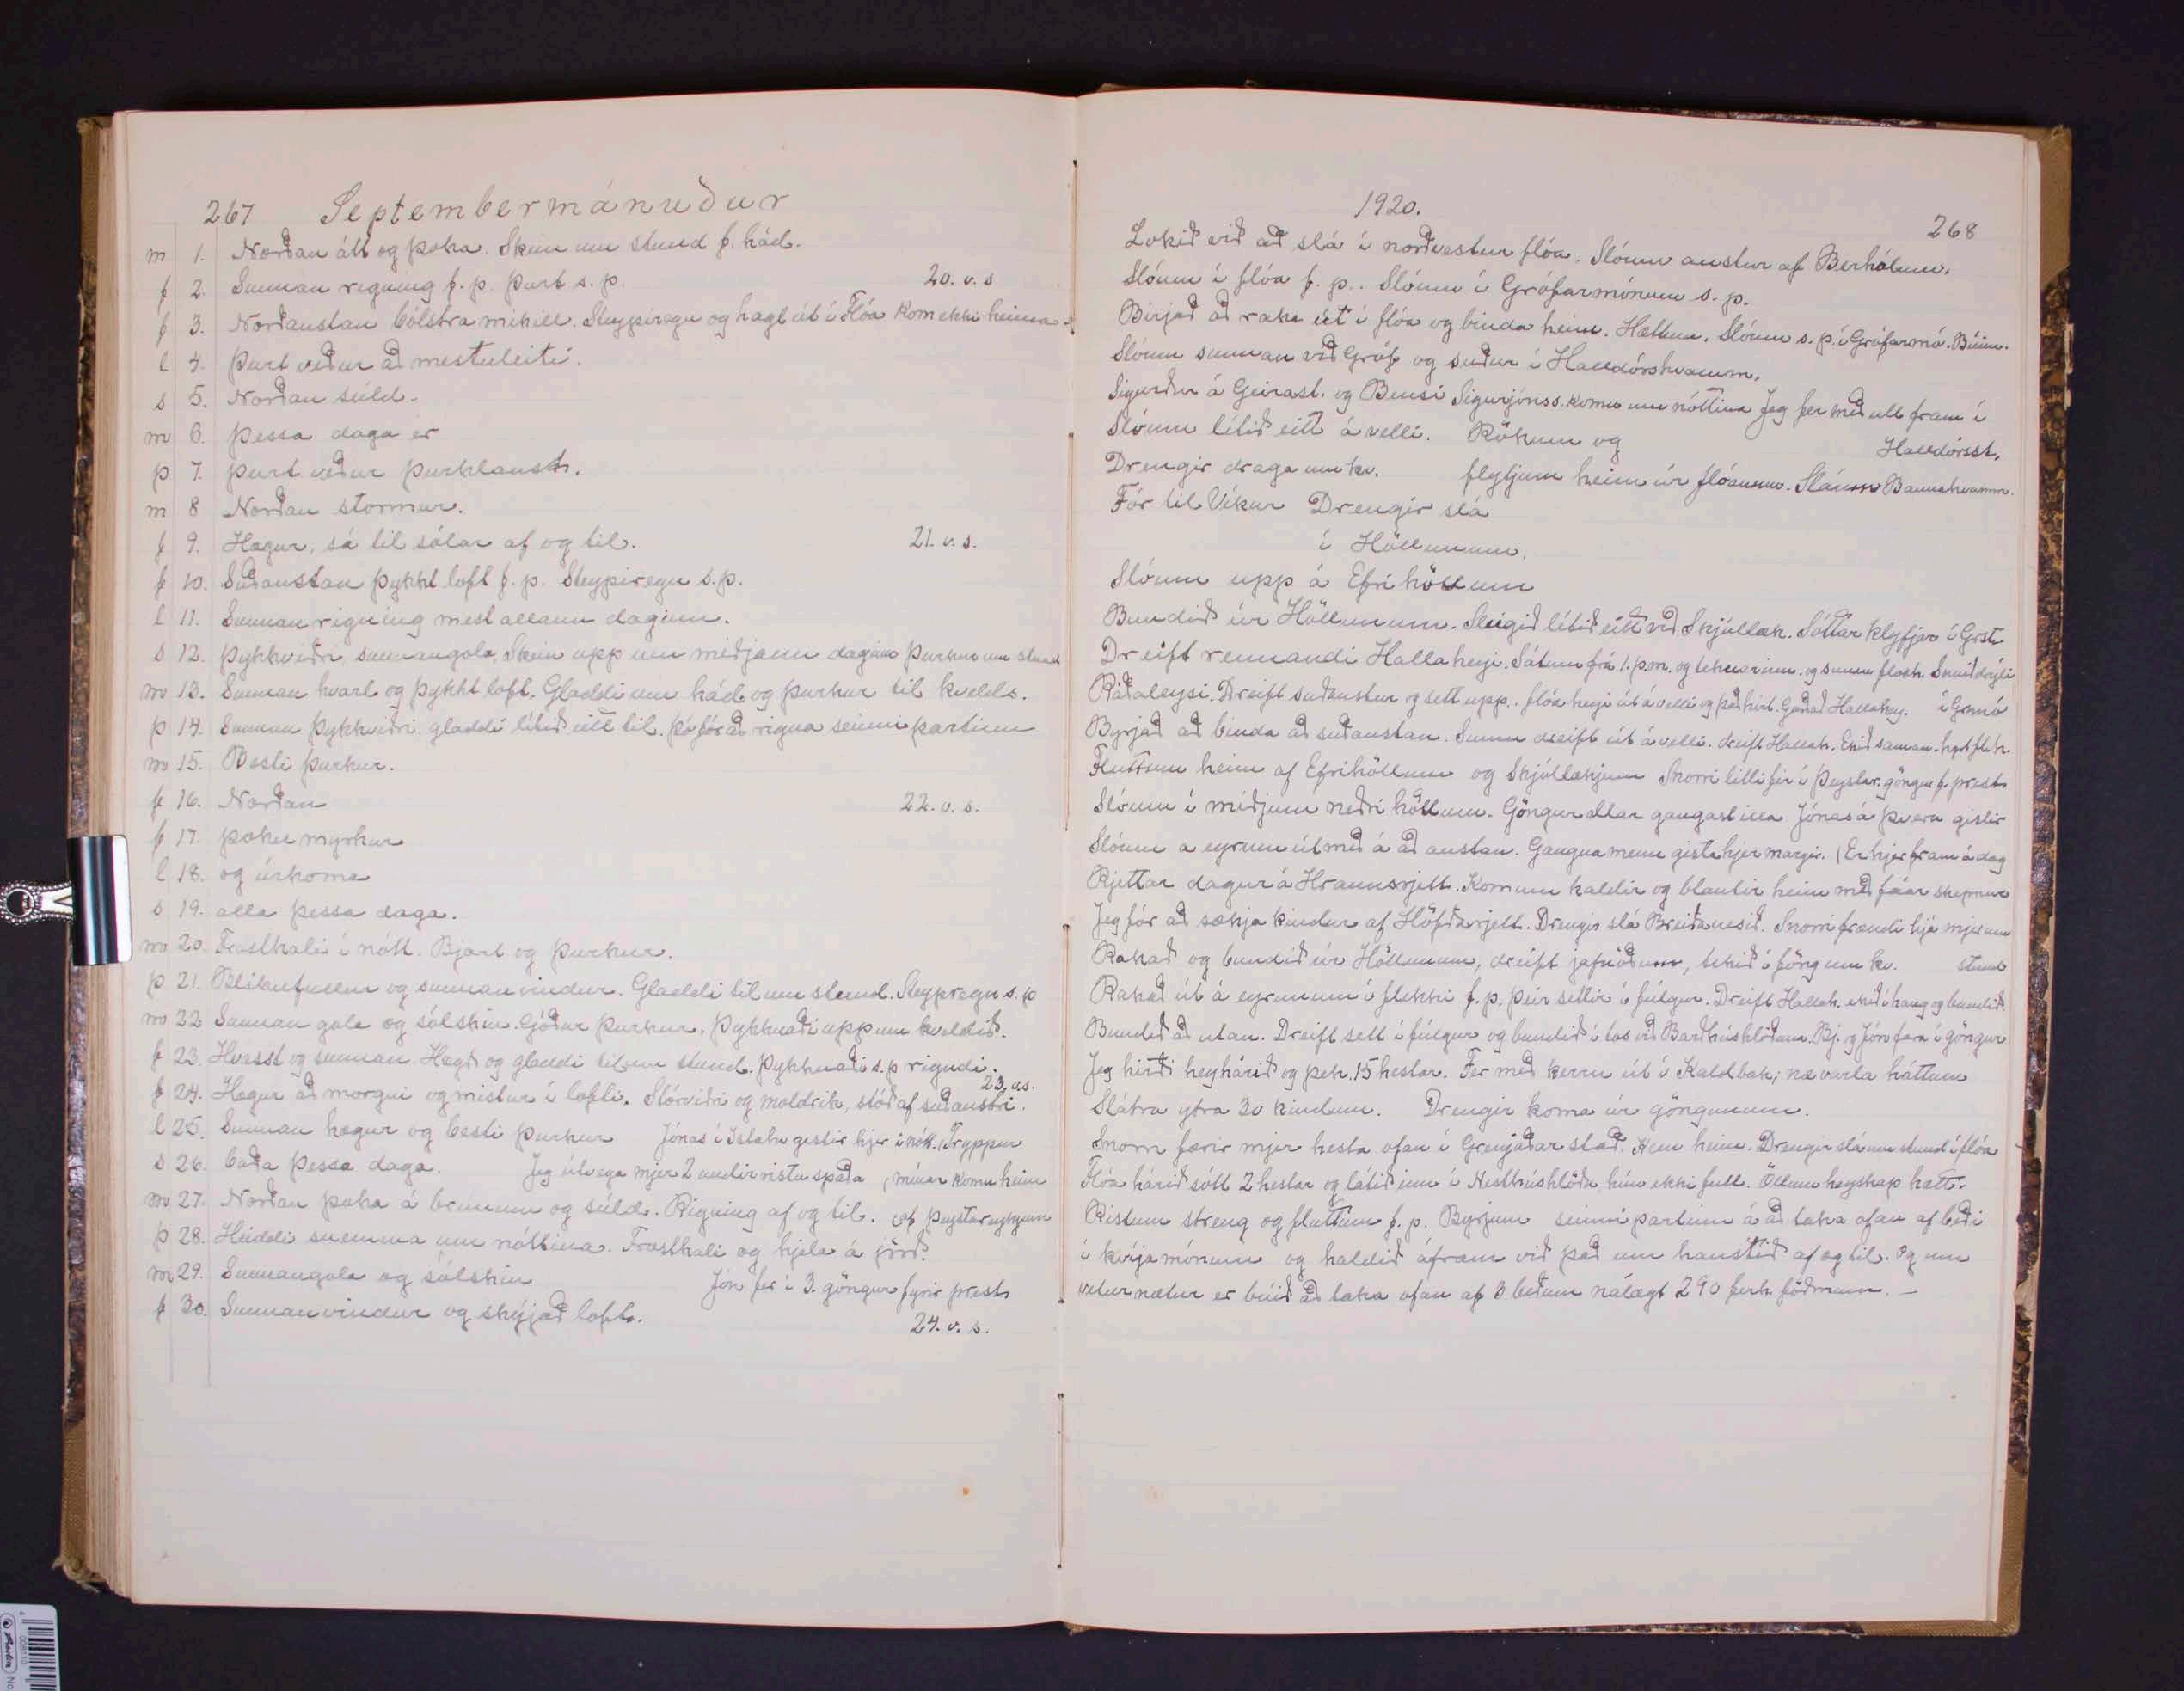 267 Septembermánuður
m 1. Norðan átt og þoka. Skein um stund f. hád.
f 2. Sunnan regning f. p. þurt s. p. 20. v. s
f 3. Norðaustan bólstra mikill. Steypiregn og hagl út í Flóa kom ekki heima.
l 4. Þurt veður að mestuleiti.
s 5. Norðan súld.
m 6. Þessa daga er
þ 7. þurt veður þurklaust.
m 8 Norðan stormur.
f 9. Hægur, sá til sólar af og til. 21. v. s.
f 10. Suðaustan þykkt loft f. p. Steypiregn s. p.
l 11. Sunnan rigning mest allann daginn.
s 12. Þykkviðri sunnangola, Skein upp um miðjann daginn Þurkur um stund
m 13. Sunnan hvast og þykkt loft. Gladdi um hád og þurkur til kvelds.
þ 14. Sunnan Þykkviðri gladdi lítið eitt til. þó fór að rigna seinni partinn
m 15. Besti þurkur.
f 16. Norðan 22. v. s.
f 17. þoku myrkur
l 18. og úrkoma
s 19. alla þessa daga.
m 20. Frostkali í nótt. Bjart og þurkur.
þ 21. Blikufullur og sunnan vindur. Gladdi til um stund. Steypregn s. p
m 22 Sunnan gola og sólskin. Góður þurkur. Þykknaði upp um kveldið.
f 23. Hvasst og sunnan. Hægði og gladdi til um stund. Þykknaði s. p rigndi.
f 24. Hægur að morgni og mistur í lofti. Stórviðri og moldrik, stóð af suðaustri. 23. v. s.
l 25. Sunnan hægur og besti þurkur Jónas í gestir hjer í nótt. Tryppur
s 26. báða þessa daga. Jeg útvega mjer 2 undirristu spaða mínar komu heim
m 27. Norðan þoka á brunum og súld. Rigning af og til. af Þeystareykjum
þ 28. Heiddi snemma um nóttina. Frostkali og hjela á jörð.
m 29. Sunnangola og sólskin Jón fer í 3. göngur fyrir prests
f 30. Sunnan vindur og skýjað loft. 24. v. s.
1920. 268
Lokið við að slá í norðvestur flóa. Slóum austur af Berhólum.
Slóum í flóa f. p.. Slóum í Grófarmónum s. p.
Birjað að raka út í flóa og binda heim. Hættum. Slóum s. p. í Grófarmó. Búum.
Slóum sunnan við Gróf og suður í Halldórshvamm.
Sigurður á Geirast. og Bensi Sigurjónss. komu um nóttina Jeg fer með ull fram í
Slóum lítið eitt á velli. Rökum og Halldórsst.
Drengir draga um kv. flytjum heim úr flóanum. Sláum Bannahvamm.
Fór til Víkur Drengir slá
í Höllunum.
Slóum upp á Efrihöllum
Bundið úr Höllunum. Slegið lítið eitt við Skjúllæk. Sóttar klyfjar í Grst.
Dreift rennandi Hallaheyi. Sátum frá 1. p. m. og tekur inn og sumu
Ráðaleysi. Dreift suðaustur og sett upp. flóa heyi út á velli og það hirt. Gáð að Hallahey. í Grmó
Byrjað að binda að suðaustan. Sumu dreift út á velli. dreift Hallah. Ekið saman.
Fluttum heim af Efrihöllum og Skjóllækjum Snorri litli fer í Þeystar. göngur f. prests
Slóum í miðjum neðri höllum. Göngur allar gangast illa Jónas á Þverá gistir
Slóum a eyrum út með á að austan. Gangna menn gista hjer margir. (Er hjer fram á dag
Rjettar dagur á Hraunsrjett. Komum kaldir og blautir heim með fáar skepnur
Jeg fór að sækja kindur af Höfðarjett. Drengir slá Breiðanesið. Snorri frændi hjá mjer um
Rakað og bundið úr Höllunum, dreift jafnóðum, tekið í föng um kv. stund
Rakað út á eyrunum í flekki f. p. þeir settir í fúlgur. Dreift Hallah. ekið í haug og bundið.
Bundið að utan. Dreift sett í fúlgur og bundið í tos við Barðhúshlöðuna. Bj. og Jón fara í göngur
Jeg hirði heyhárið og þek. 15 hestar. Fer með kerru út í Kaldbak; næ varla háttum
Slátra ytra 30 kindum. Drengir koma úr göngunum.
Snorri færir mjer hesta ofan í Grenjaðarstað. Kem heim. Drengir slá um stund í flóa
Flóa hárið sótt 2 hestar og látið inn í Nesthúshlöðu hún ekki full. Öllum heyskap hætt.
Ristum streng og fluttum f. p. Byrjum seinni partinn á að taka ofan af beði
í kvíja mónum og haldið áfram við það um haustið af og til. Og um
vetur nætur er búið að taka ofan af 3 beðum nálægt 290 ferh föðmum. —